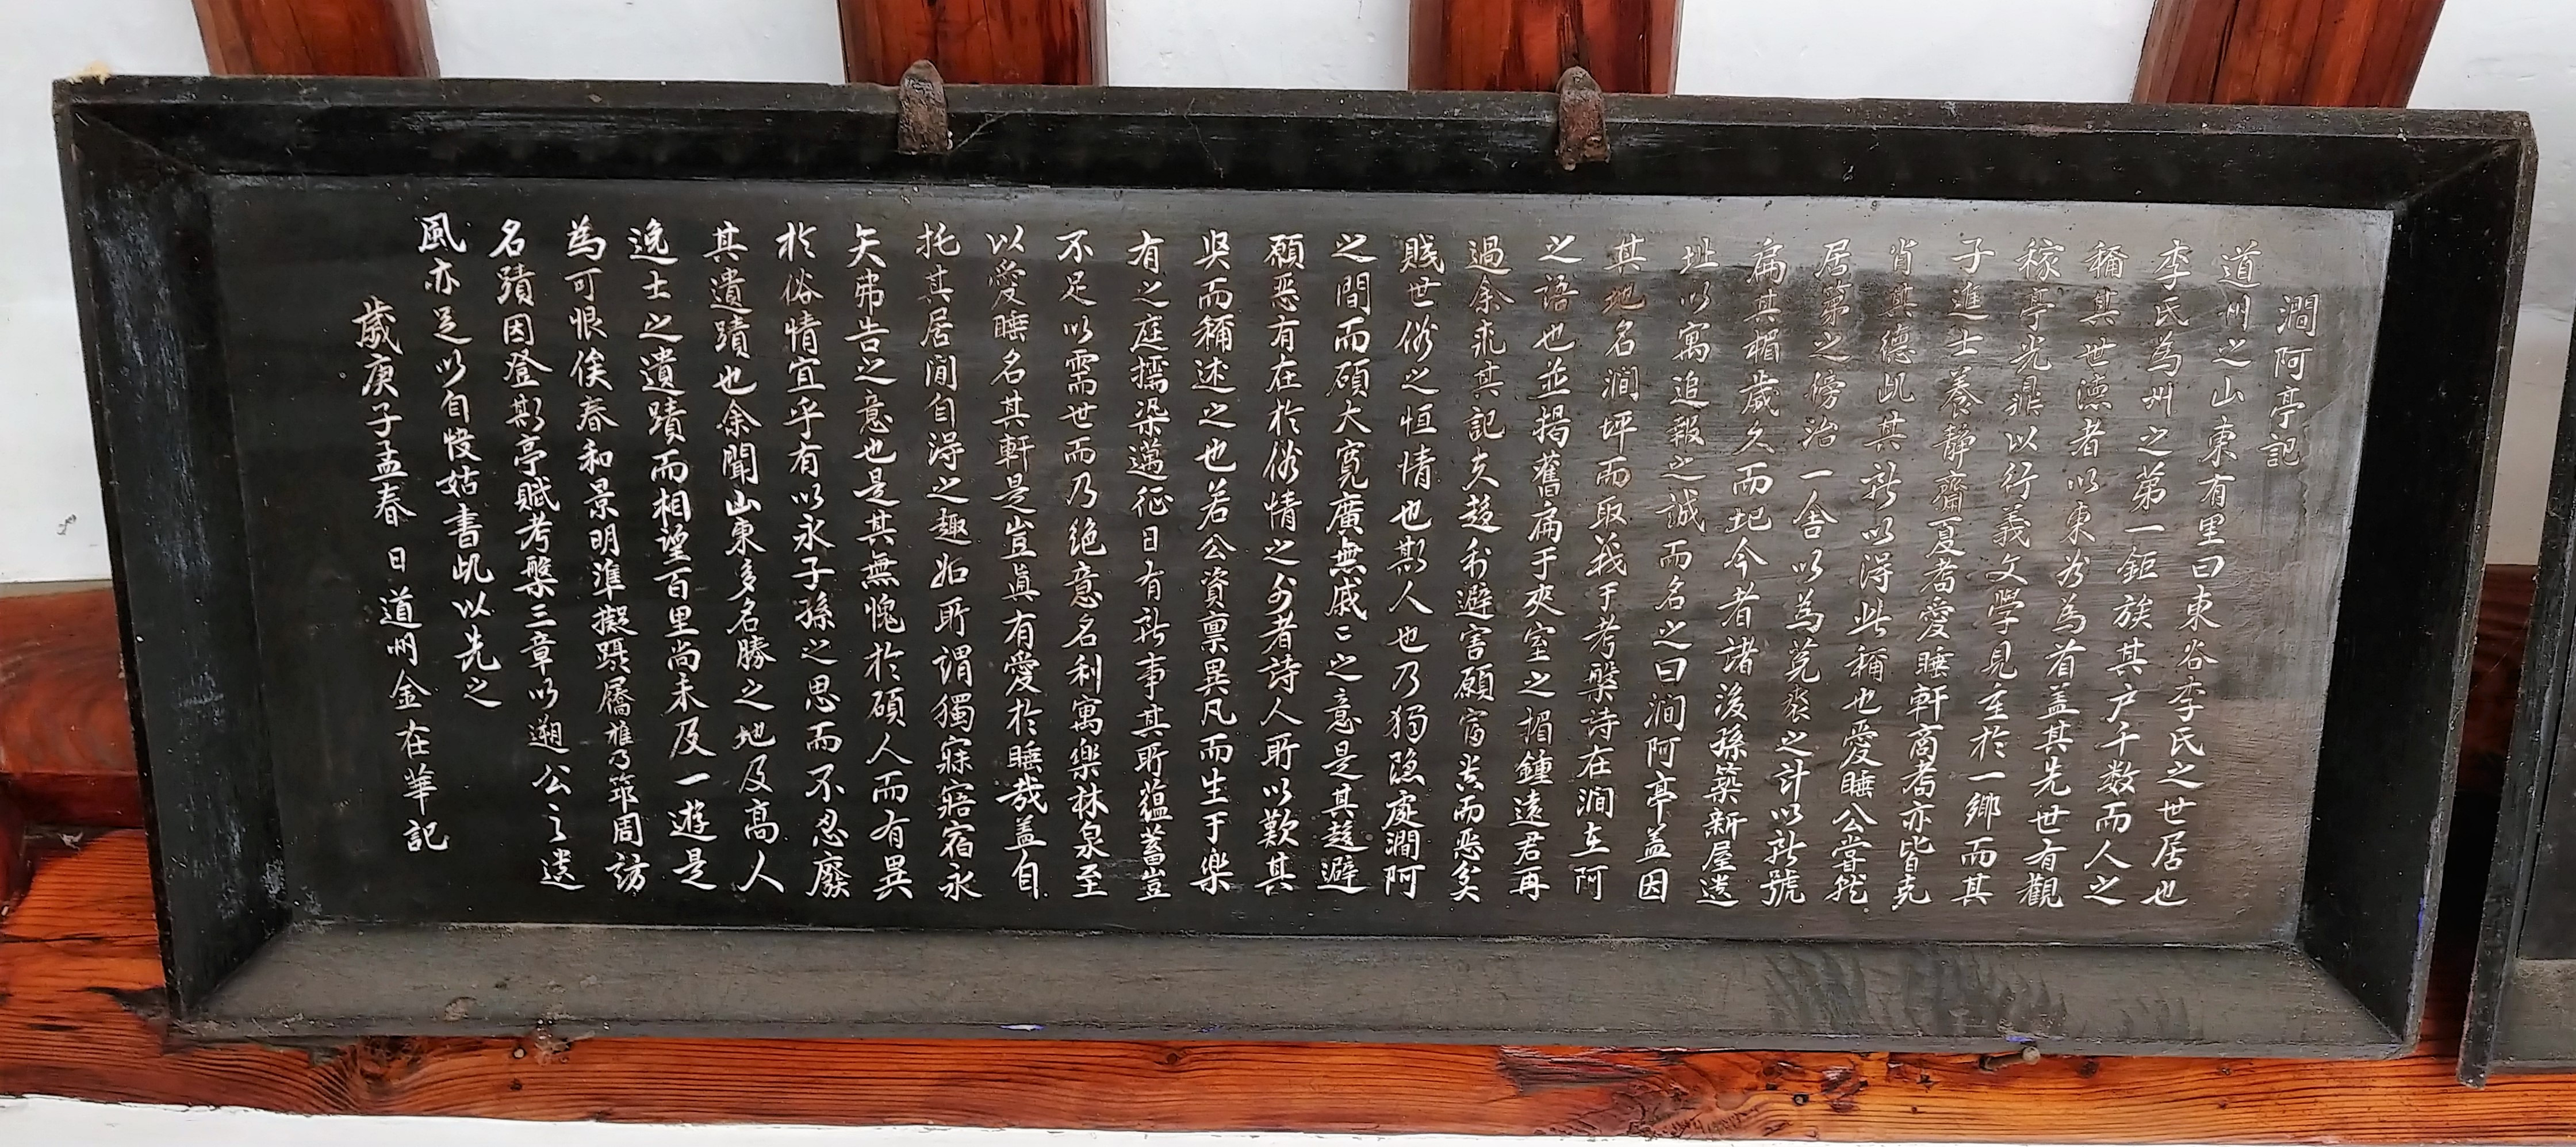 澗阿亭記
道州之山東有里曰東谷李氏之世居也
李氏為州之第一鉅族其户千数而人之
稱其世德者以東谷為首盖其先世有觀
稼亭光鼎以行義文學見重於一鄉而其
子進士養静齋夏耈愛睡軒商耈亦皆克
肖其德此其所以得此稱也愛睡公嘗就
居第之傍治一舍以為菟裘之計以所號
扁其楣歲久而圮今者諸後孫築新屋遺
址以寓追報之誠而名之曰澗阿亭盖因
其地名澗坪而取義于考槃詩在澗在阿
之語也並揭舊扁于夾室之楣鍾遠君再
過余求其記夫趍利避害願富貴而恶貧
賤世俗之恒情也斯人也乃獨隐處澗阿
之間而碩大寬廣無戚〻之意是其趍避
願恶有在於俗情之外者詩人所以歎其
異而稱述之也若公資禀異凡而生于樂
有之庭擩染邁征日有所事其所蘊蓄豈
不足以需世而乃絶意名利寓樂林泉至
以愛睡名其軒是豈眞有愛於睡哉盖自
托其居閒自得之趣如所謂獨寐寤宿永
矢弗告之意也是其無愧於碩人而有異
於俗情宜乎有以永子孫之思而不忍廢
其遺蹟也余聞山東多名勝之地及高人
逸士之遺蹟而相望百里尚未及一遊是
為可恨俟春和景明準擬躡屩携筇周訪
名蹟因登斯亭賦考槃三章以遡公之遺
風亦足以自慢姑書此以先之
歲庚子孟春 日道州金在華記